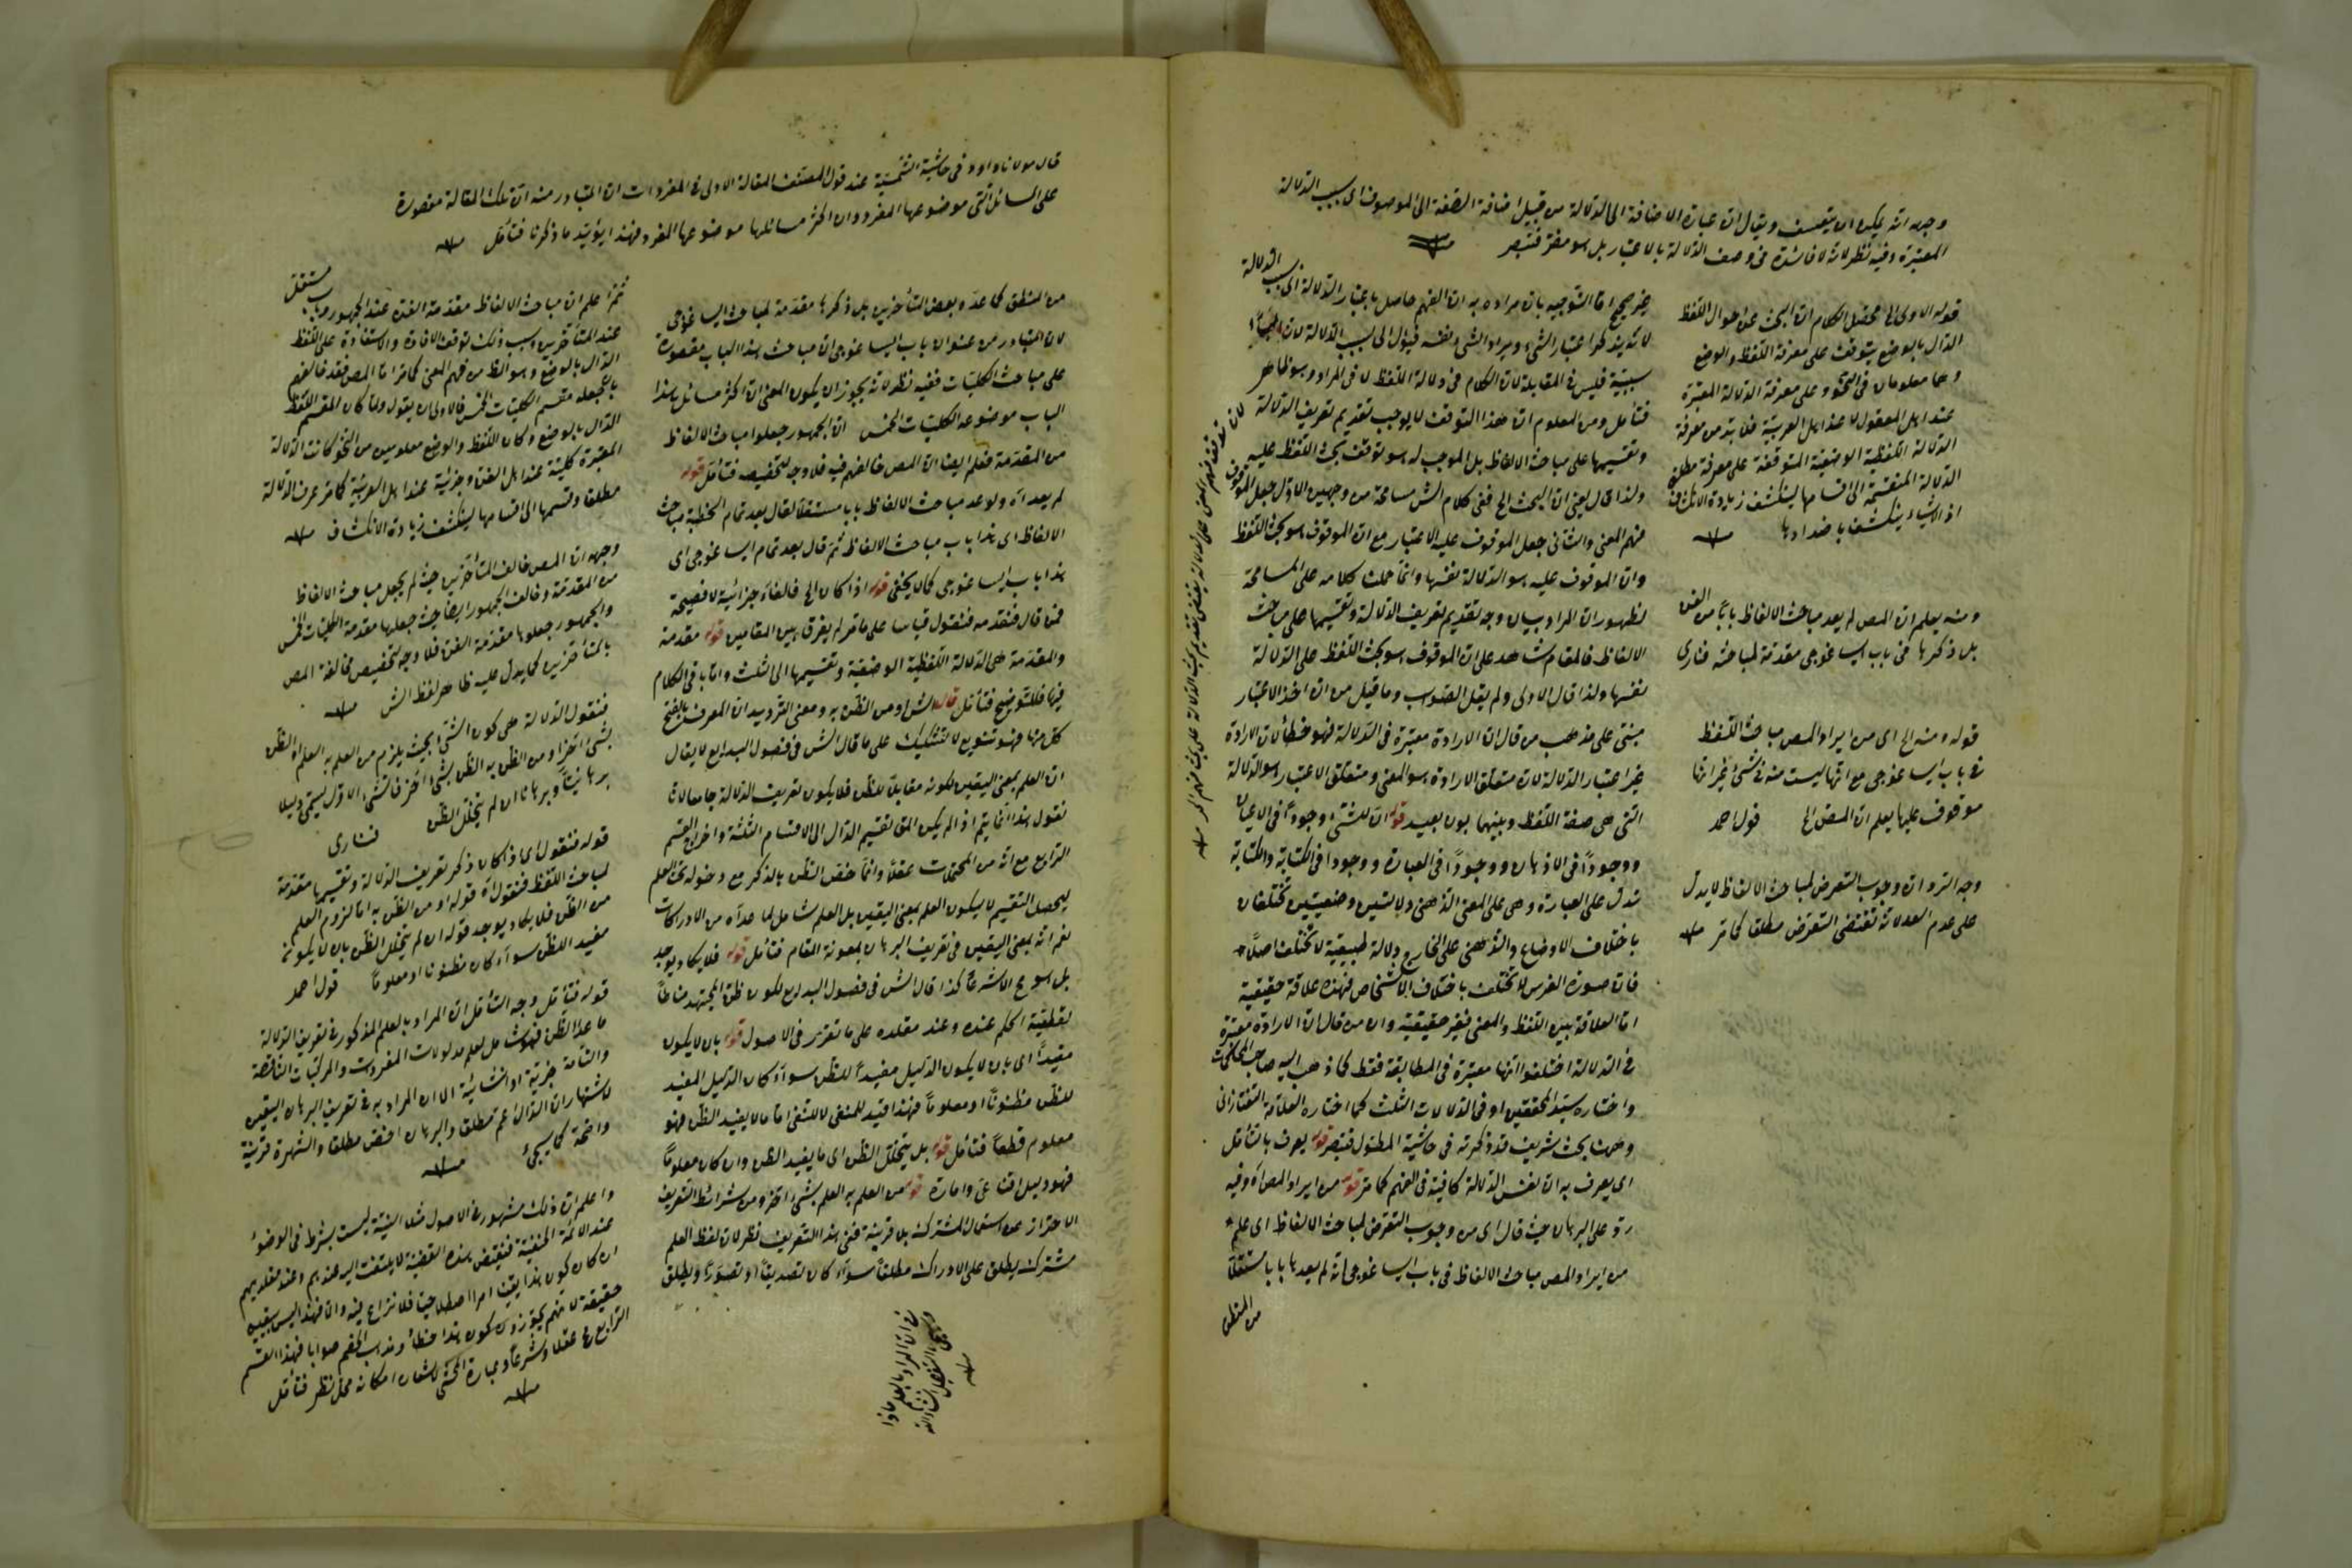 وجهه انه يمكن ان يتعسف ويقال ان عبارة الاضافة الى الدلالة من قبيل اضافة الصفة الى الموصوف اى بسبب الدلالة
المعتبرة وفيه نظر لانه لا فائدة فى وصف الدلالة بالاعتبار بل هو مضر فتبصر
قوله الاولى الخ محصل الكلام ان البحث عن احوال اللفظ
الدال بالوضع يتوقف على معرفة اللفظ والوضع
وهما معلومان فى النحو وعلى معرفة الدلالة المعتبرة
عند اهل المعقول لا عند اهل العربية فلا بد من معرفة
الدلالة اللفظية الوضعية المتوقفة على معرفة مطلق
الدلالة المنقسمة الى اقسامها لينكشف زيادة الانكشاف
اذ الاشياء ينكشف باضدادها
ومنه يعلم ان المص لم يعد مباحث الالفاظ بابا من الفن
بل ذكرها فى باب ايساغوجى مقدمة لمباحثه فنارى
قوله ومنه الخ اى من ايراد المص مباحث اللفظ
فى باب ايساغوجى مع انها ليست منه فى شئ غير انها
موقوف عليها يعلم ان المص الخ قول احمد
وجه الرد ان وجوب التعرض لمباحث الالفاظ لا يدل
على عدم العد لانه تقتضى التعرض مطلقا كما مر
غير صحيح اما التوجيه بان مراده به ان الفهم حاصل باعتبار الدلالة اى بسبب الدلالة
لانه يذكر اعتبار الشئ ويراد الشئ نفسه فيؤل الى بسبب الدلالة لان الباء
سببية فليس فى المقابلة لان الكلام فى دلالة اللفظ لا فى المراد وهو ظاهر
فتأمل ومن المعلوم ان هذا التوقف لا يوجب تقديم تعريف الدلالة
وتقسيمها على مباحث الالفاظ بل الموجب له هو توقف بحث اللفظ عليه
ولذا قال يعنى ان البحث الخ ففى كلام الش مسامحة من وجهين الاول جعل الموقوف
فهم المعنى والثانى جعل الموقوف عليه الاعتبار مع ان الموقوف هو بحث اللفظ
وان الموقوف عليه هو الدلالة نفسها وانما حملت كلامه على المسامحة
لظهور ان المراد بيان وجه تقديم تعريف الدلالة وتقسيمها على مباحث
الالفاظ فالمقام شاهد على ان الموقوف هو بحث اللفظ على الدلالة
نفسها ولذا قال الاولى ولم يقل الصواب وما قيل من ان اخذ الاعتبار
مبنى على مذهب من قال ان الارادة معتبرة فى الدلالة فهو خطأ لان الارادة
غير اعتبار الدلالة لان متعلق الارادة هو المعنى ومتعلق الاعتبار هو الدلالة
التى هى صفة اللفظ وبينهما بون بعيد قوله ان للشئ وجودا فى الاعيان
ووجودا فى الاذهان ووجودا فى العبارة ووجودا فى الكتابة والكتابة
تدل على العبارة وهى على المعنى الذهنى دلالتين وضعيتين تختلفان
باختلاف الاوضاع والذهنى على الخارج دلالة طبيعية لا تختلف اصلا
فان صورة الفرس لا تختلف باختلاف الاشخاص فهذه علاقة حقيقية
اما العلاقة بين اللفظ والمعنى فغير حقيقية وان من قال ان الارادة معتبرة
فى الدلالة اختلفوا انها معتبرة فى المطابقة فقط كما ذهب اليه صاحب المحاكمات
واختاره سيد المحققين او فى الدلالات الثلث كما اختاره العلامة التفتازانى
وههنا بحث شريف قد ذكرته فى حاشية المطول فتبصر قوله يعرف بالتأمل
اى يعرف به ان نفس الدلالة كافية فى الفهم كما مر قوله من ايراد المص اه وفيه
رد على البرهان حيث قال اى من وجوب التعرض لمباحث الالفاظ اى علم
من ايراد المص مباحث الالفاظ فى باب ايساغوجى انه لم يعدها بابا مستقلا
من المنطق
قال مولانا داود فى حاشية الشمسية عند قول المصنف المقالة الاولى فى المفردات ان المتبادر منه ان تلك المقالة مقصورة
على المسائل التى موضوعها المفرد وان اكثر مسائلها موضوعها المفرد فهذا يؤيد ما ذكرنا فتأمل
من المنطق كما عد وبعض المتأخرين بل ذكرها مقدمة لمباحث ايساغوجى
لان المتبادر من عنوان باب ايساغوجى ان مباحث هذا الباب مقصورة
على مباحث الكليات ففيه نظر لانه يجوز ان يكون المعنى ان اكثر مسائل هذا
الباب موضوعه الكليات الخمس ان الجمهور جعلوا مباحث الالفاظ
من المقدمة فعلم ايضا ان المص خالفهم فيه فلا وجه لتخصيصه فتأمل قوله
لم يعد اه ولو عد مباحث الالفاظ بابا مستقلا لقال بعد تمام الخطبة مباحث
الالفاظ اى هذا باب مباحث الالفاظ ثم قال بعد تمام ايساغوجى اى
هذا باب ايساغوجى كما لا يخفى قوله اذا كان الخ فالفاء جزائية لا فصيحة
فمن قال فنقدمه فنقول قياسا على ما مر لم يفرق بين المقامين قوله مقدمة
والمقدمة هى الدلالة اللفظية الوضعية وتقسيمها الى الثلث واما باقى الكلام
فيها فللتوضيح فتأمل قال الش او من الظن به ومعنى الترديد ان المعرف بالفتح
كل منهما فهو تنويع لا لتشكيك على ما قال الش فى فصول البدايع لا يقال
ان العلم بمعنى اليقين لكونه مقابلا للظن فلا يكون تعريف الدلالة جامعا لانا
نقول هذا انما يتم اذا لم يكن المق تقسيم الدال الى الاقسام الثلثة واخراج القسم
الرابع مع انه من المحتملات عقلا وانما خص الظن بالذكر مع دخوله تحت العلم
ليحصل التقسيم لا يكون العلم بمعنى اليقين بل العلم شامل لما عداه من الادراكات
نعم انه بمعنى اليقين فى تعريف البرهان بمعونة المقام فتأمل قوله فلا يكاد يوجد
بل هو مح الا شرعا كذا قال الش فى فصول البدايع لكون ظن المجتهد مناطا
لقطعية الحكم عنده وعند مقلده على ما تقرر فى الاصول قوله بان لا يكون
مفيدا اى بان لا يكون الدليل مفيدا للظن سواء كان الدليل المفيد
للظن مظنونا او معلوما فهذا قيد للمنفى لا للنفى اما ما لا يفيد الظن فهو
معلوم قطعا فتأمل قوله بل يتخلل الظن اى ما يفيد الظن وان كان معلوما
فهو دليل اقناعى وامارة قوله من العلم به العلم بشئ اخر ومن شرائط التعريف
الاحتراز عن استعمال المشترك بلا قرينة ففى هذا التعريف نظر لان لفظ العلم
مشترك يطلق على الادراك مطلقا سواء كان تصديقا او تصورا ويطلق
ثم اعلم ان مباحث الالفاظ مقدمة الفن عند الجمهور وباب مستقل
عند المتأخرين وسبب ذلك توقف الافادة والاستفادة على اللفظ
الدال بالوضع وهو الظ من فهم المعنى كما مر اما المص فقد خالفهم
بان جعله مقسم الكليات الخمس فالاولى ان يقول ولما كان المقسم اللفظ
الدال بالوضع وكان اللفظ والوضع معلومين من النحو كانت الدلالة
المعتبرة كلية عند اهل الفن وجزئية عند اهل العربية كما مر عرف الدلالة
مطلقا وقسمها الى اقسامها لينكشف زيادة الانكشاف
وجهه ان المص خالف المتأخرين حيث لم يجعل مباحث الالفاظ
من المقدمة وخالف الجمهور ايضا حيث جعلها مقدمة الكليات الخمس
والجمهور جعلوها مقدمة الفن فلا وجه لتخصيص مخالفة المص
بالمتأخرين كما يدل عليه ظاهر لفظ الش
فنقول الدلالة هى كون الشئ بحيث يلزم من العلم به العلم او الظن
بشئ اخر او من الظن به الظن بشئ اخر فالشئ الاول يسمى دليلا
برهانيا وبرهانا ان لم يتخلل الظن فنارى
قوله فنقول اى اذا كان ذكر تعريف الدلالة وتقسيمها مقدمة
لمباحث اللفظ فنقول اه قوله او من الظن به اما لزوم العلم
من الظن فلا يكاد يوجد قوله ان لم يتخلل الظن بان لا يكون
مفيد الظن سواء كان مظنونا او معلوما قول احمد
قوله فتأمل وجه التأمل ان المراد بالعلم المذكور فى تعريف الدلالة
ما عدا الظن فهو شامل لعلم مدلولات المفردات والمركبات الناقصة
والتامة خبرية او انشائية الا ان المراد به فى تعريف البرهان اليقين
لاشتهار ان الدال اعم مطلقا والبرهان اخص مطلقا والشهرة قرينة
واضحة كما سيجئ
واعلم ان ذلك مشهور فى الاصول مثلا النية ليست بشرط فى الوضوء
عند الائمة الحنفية فنقيض هذه القضية لا يلتفت اليه عندهم وعند مقلديهم
ان كان كون هذا يقينا امرا اصطلاحيا فلا نزاع فيه واما فهذا ليس بيقين
حقيقة لانهم يجوزون كون هذا خطأ ومذهب الخصم صوابا فهذا القسم
الرابع مح عقلا وشرعا وعبارة المحشى لاشعاره امكانه محل نظر فتأمل